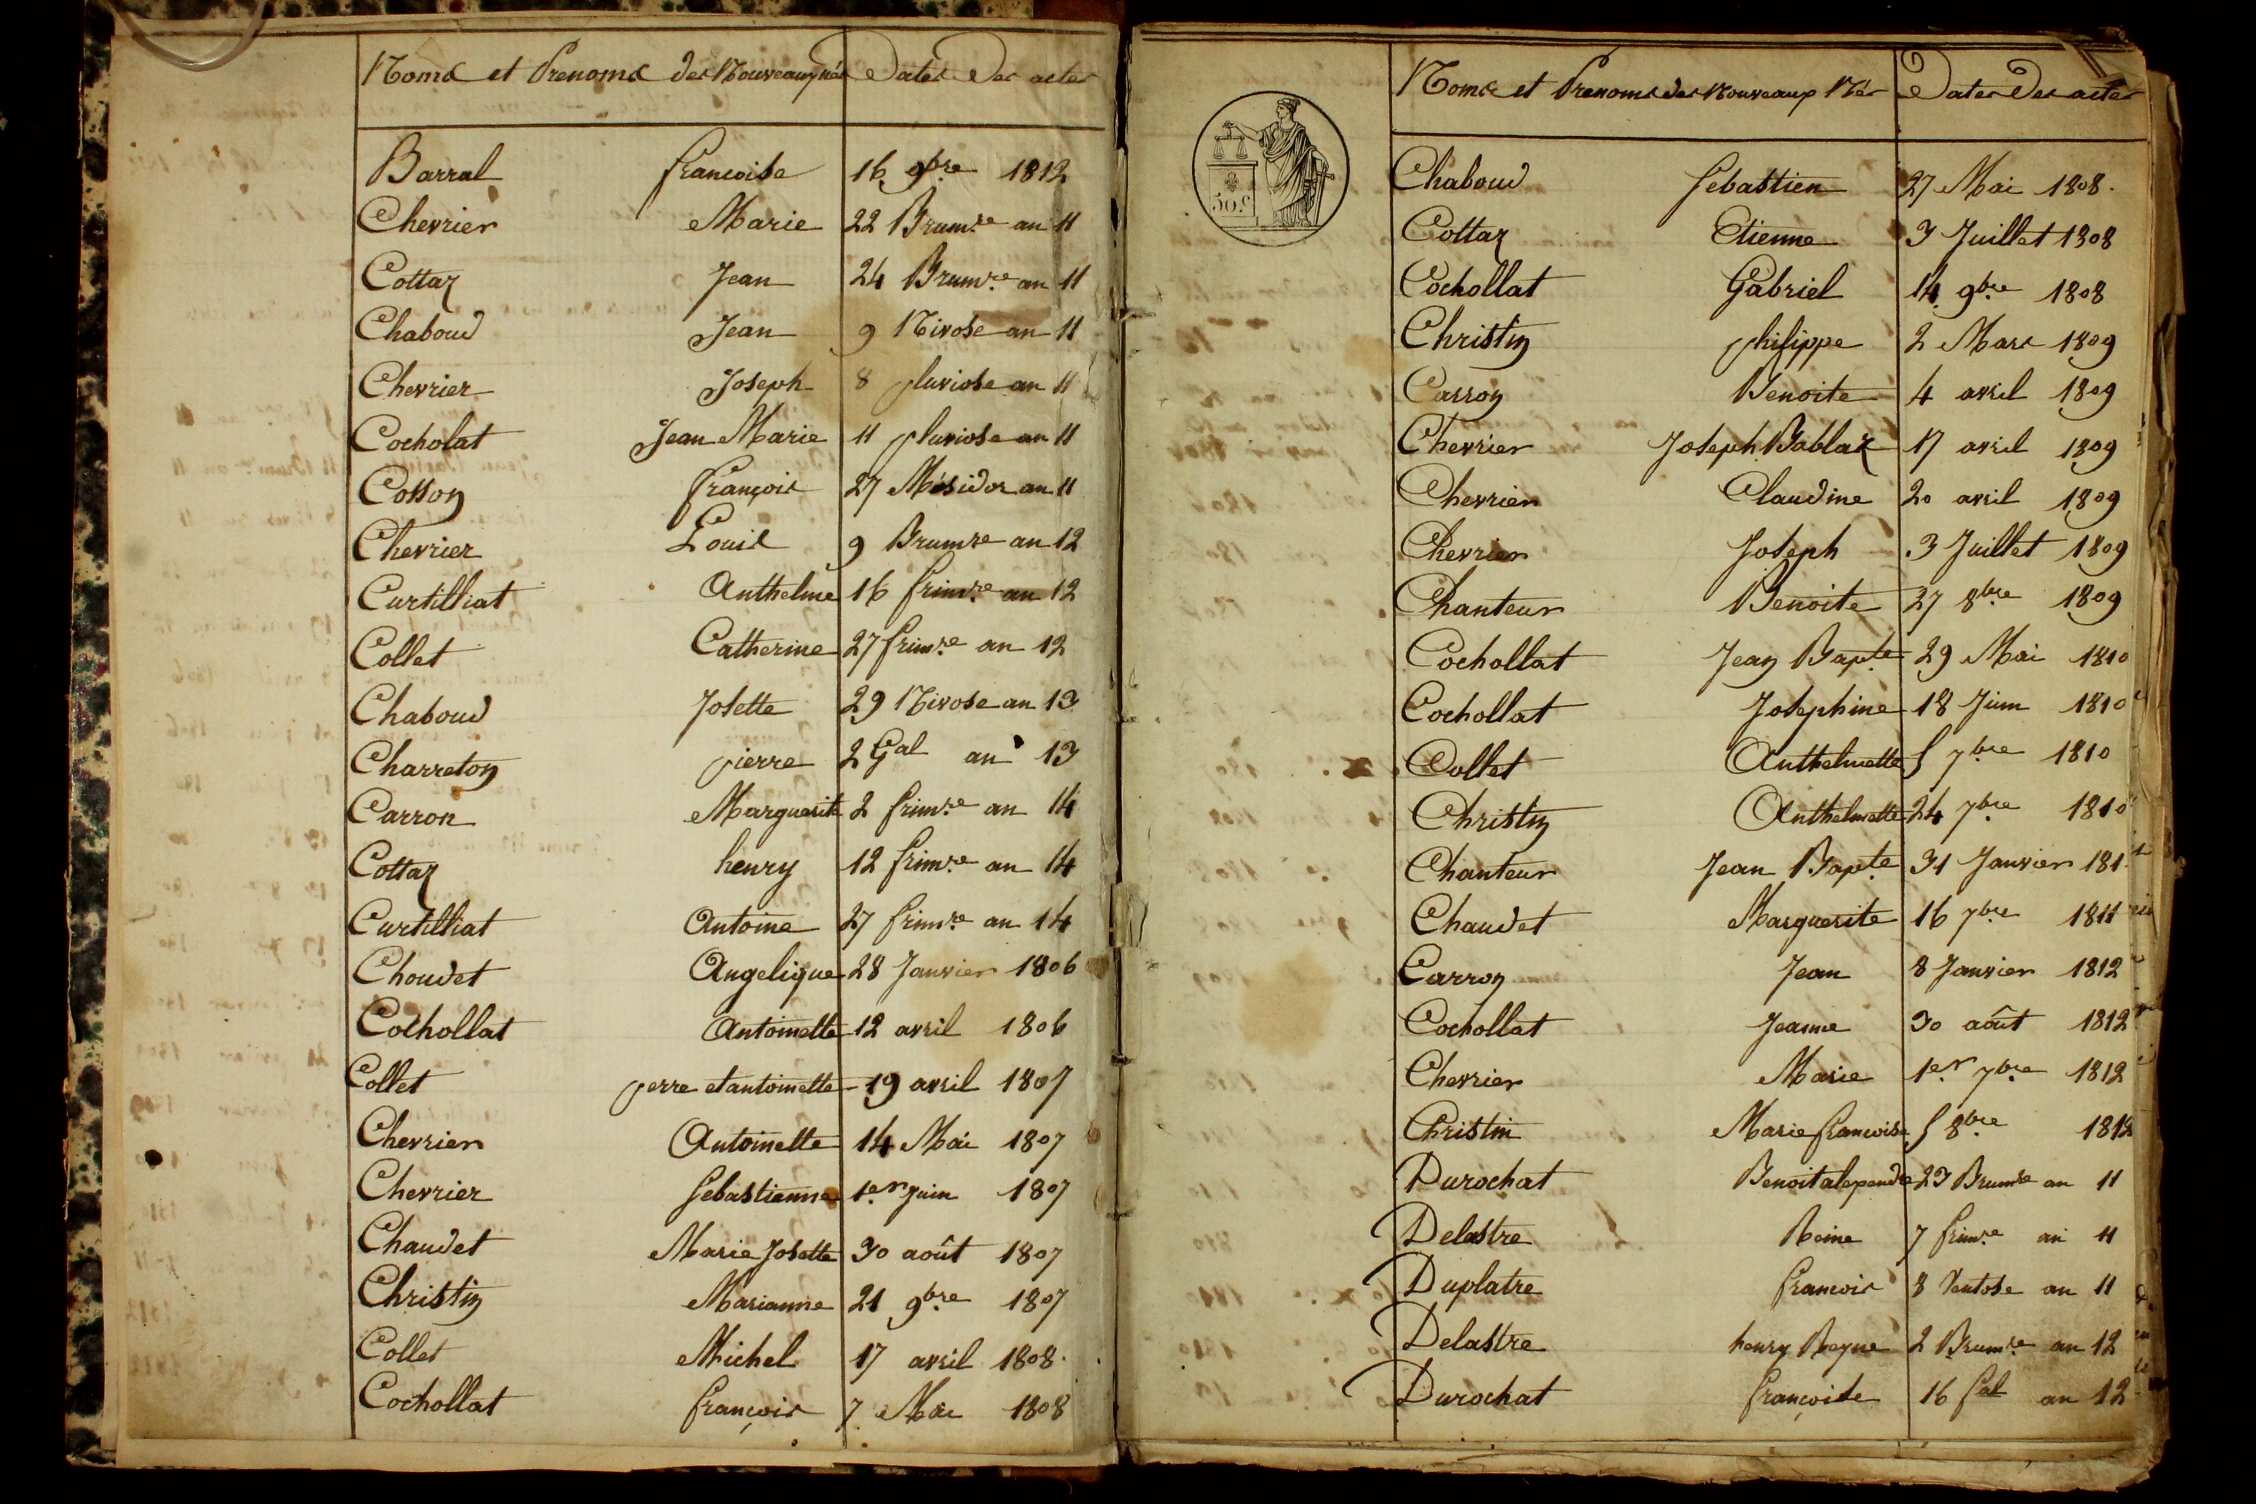 Noms et Prenoms des Nouveaux nés Dates des actes
Barral francoise 16 9bre 1812
Chevrier Marie 22 Brumre an 11
Cottaz Jean 24 Brumre an 11
Chaboud Jean 9 Nivose an 11
Chevrier Joseph 8 pluviose an 11
Cocholat Jean Marie 11 pluviose an 11
Cosson françois 27 Mésidor an 11
Chevrier Louis 9 Brumre an 12
Curtilliat Anthelme 16 frimre an 12
Collet Catherine 27 frimre an 12
Chaboud Josette 29 Nivose an 13
Charreton pierre 2 Gal an 13
Carron Marguerite 2 frimre an 14
Cottaz henry 12 frimre an 14
Curtilliat Antoine 27 frimre an 14
Choudet Angelique 28 Janvier 1806
Cochollat Antoinette 12 avril 1806
Collet pierre et antoinette 19 avril 1807
Chevrier Antoinette 14 Mai 1807
Chevrier Sebastienne 1er juin 1807
Chaudet Marie Josette 30 août 1807
Christin Marianne 21 9bre 1807
Collet Michel 17 avril 1808
Cochollat françois 7 Mai 1808
50 c
Noms et Prenoms des Nouveaux Nés Dates des actes
Chaboud Sebastien 27 Mai 1808
Cottaz Etienne 3 Juillet 1808
Cochollat Gabriel 14 9bre 1808
Christin philippe 2 Mars 1809
Carron Benoite 4 avril 1809
Chevrier Joseph Bablaz 17 avril 1809
Chevrier Claudine 20 avril 1809
Chevrier Joseph 3 Juillet 1809
Chanteur Benoite 27 8bre 1809
Cochollat Jean Bapte 29 Mai 1810
Cochollat Josephine 18 Juin 1810
Collet Anthelmette 5 7bre 1810
Christin Anthelmette 24 7bre 1810
Chanteur Jean Bapte 31 Janvier 181
Chaudet Marguerite 16 7bre 1811
Carron Jean 8 Janvier 1812
Cochollat Jeanne 30 août 1812
Chevrier Marie 1er 7bre 1812
Christin Marie francoise 5 8bre 1812
Durochat Benoit 23 Brumre an 11
Delastre Reine 7 frimre an 11
Duplatre francois 8 Ventose an 11
Delastre henry Reyne 2 Brumre an 12
Durochat françoise 16 fal an 12